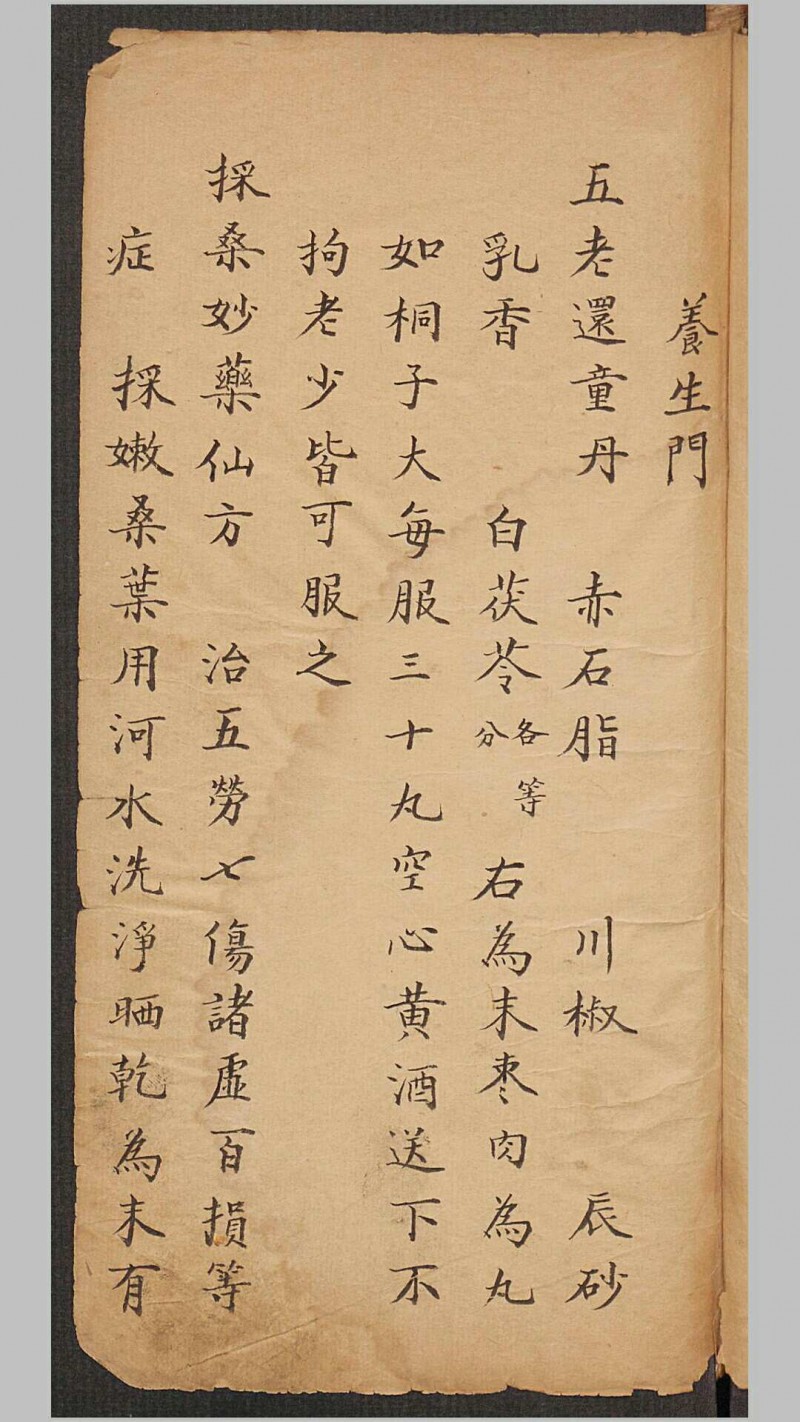 養生門
五老還童丹　赤石脂　川椒　辰砂
乳香　白茯苓各等分　右為末枣肉為丸
如桐子大每服三十丸空心黄酒送下不
拘老少皆可服之
採桑妙藥仙方　治五勞七傷諸虛百損等
症　採嫩桑葉用河水洗淨晒乾為末有